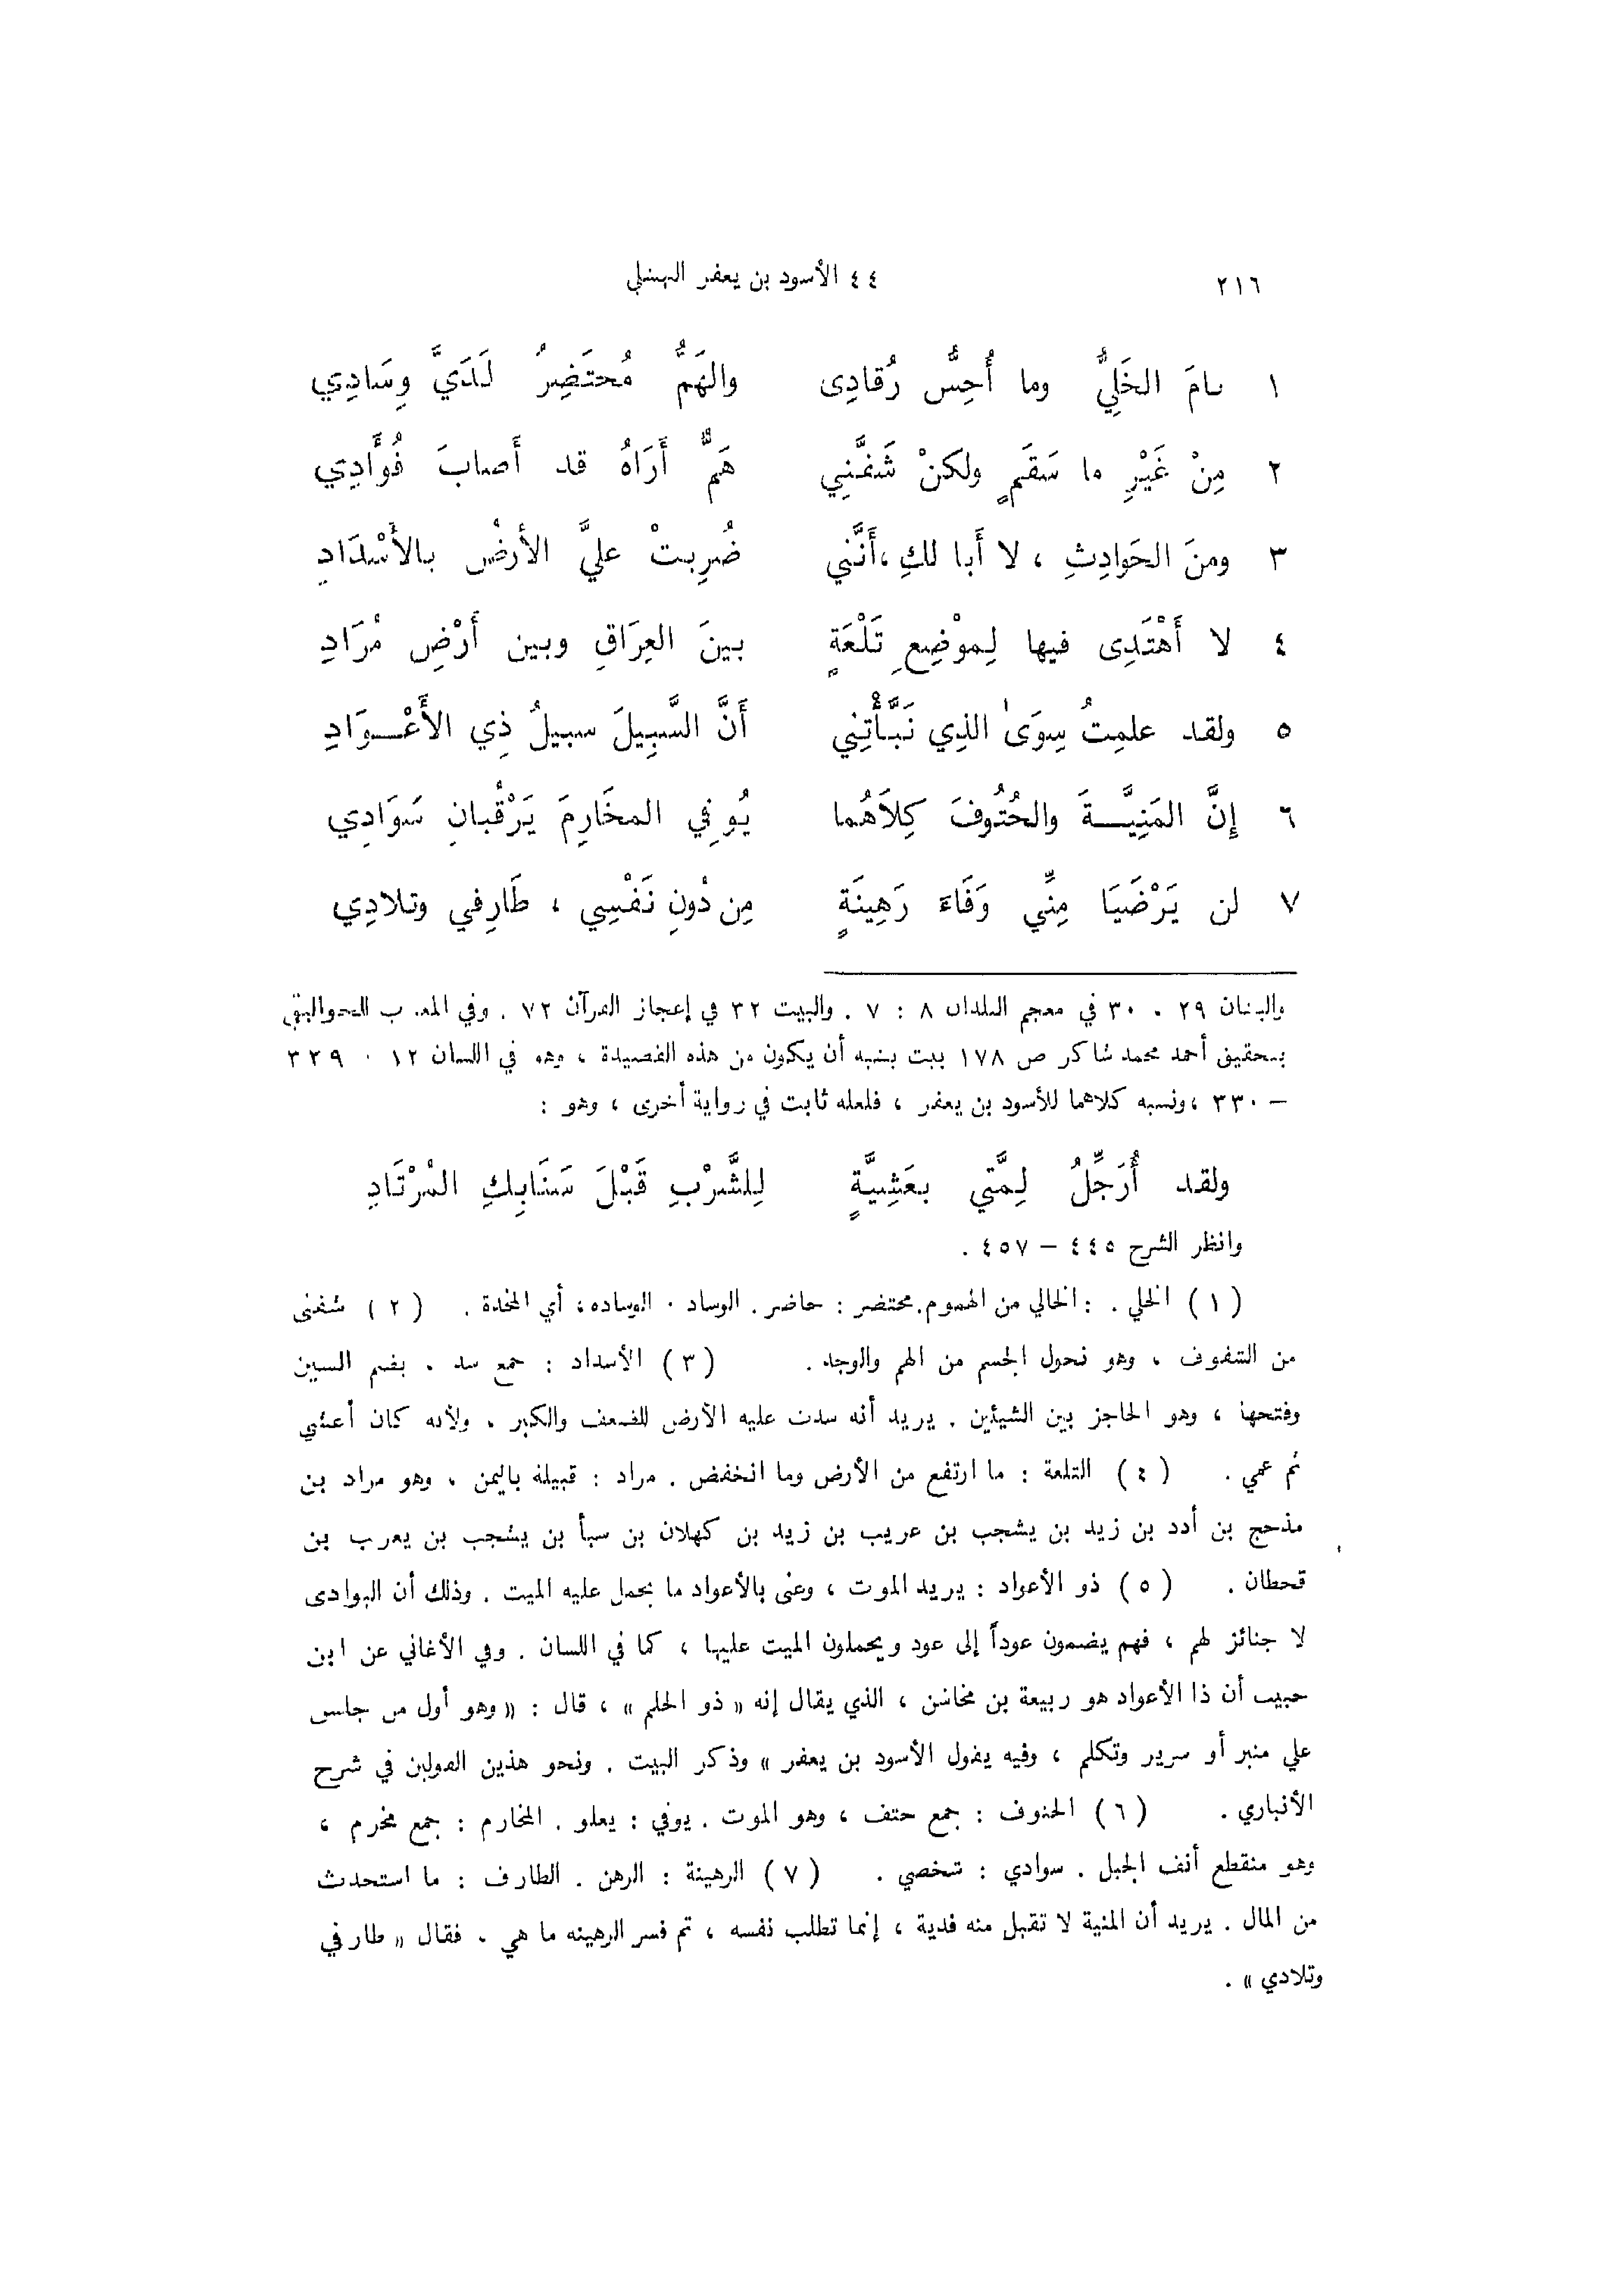 ٢١٦ ٤٤ الأسود بن يعفر النهشلي
١ نامَ الخَلِيُّ وما أُحِسُّ رُقادِى والهَمُّ مُحتَضِرٌ لَدَيَّ وِسَادِي
٢ مِنْ غَيْرِ ما سَقَمٍ ولكنْ شَفَّنِي هَمٌّ أَرَاهُ قد أَصابَ فُؤَادِي
٣ ومنَ الحَوادِثِ ، لا أَبا لكِ ، أَنَّني ضُرِبتْ عليَّ الأرضُ بالأَسْدَادِ
٤ لا أَهْتَدِى فيها لِموْضِعِ تَلْعَةٍ بينَ العِرَاقِ وبين أَرْضِ مُرَادِ
٥ ولقد علمِتُ سِوَىٰ الذِي نَبَّأْتِنِي أَنَّ السَّبِيلَ سبيلُ ذِي الأَعْــوَادِ
٦ إِنَّ المَنِيَّــةَ والحُتُوفَ كِلاَهُما يُوفِي المخَارِمَ يَرْقُبانِ سَوَادِي
٧ لن يَرْضَيَا مِنِّي وَفَاءَ رَهِينَةٍ مِن دُونِ نَفْسِي ، طَارِفي وتلادِي
والبيتان ٢٩ ، ٣٠ في معجم البلدان ٨ : ٧ . والبيت ٣٢ في إعجاز القرآن ٧٢ . وفي المعرب للجواليقي
بتحقيق أحمد محمد شاكر ص ١٧٨ بيت يشبه أن يكون من هذه القصيدة ، وهو في اللسان ١٢ : ٣٢٩
– ٣٣٠ ، ونسبه كلاهما للأسود بن يعفر ، فلعله ثابت في رواية أخرى ، وهو :
ولقد أُرَجِّلُ لِمَّتي بعَشِيَّةٍ لِلشَّرْبِ قَبْلَ سَنَابِكِ المُرْتَادِ
وانظر الشرح ٤٤٥ – ٤٥٧ .
( ١ ) الخلي . : الخالي من الهموم . محتضر : حاضر . الوساد : الوساده ، أي المخدة . ( ٢ ) شفنى
من الشفوف ، وهو نحول الجسم من الهم والوجد . ( ٣ ) الأسداد : جمع سد ، بضم السين
وفتحها ، وهو الحاجز بين الشيئين . يريد أنه سدت عليه الأرض للضعف والكبر ، ولأنه كان أعشي
ثم عمي . ( ٤ ) التلعة : ما ارتفع من الأرض وما انخفض . مراد : قبيلة باليمن ، وهو مراد بن
مذحج بن أدد بن زيد بن يشجب بن عريب بن زيد بن كهلان بن سبأ بن يشجب بن يعرب بن
قحطان . ( ٥ ) ذو الأعواد : يريد الموت ، وعنى بالأعواد ما يحمل عليه الميت . وذلك أن البوادى
لا جنائز لهم ، فهم يضمون عوداً إلى عود ويحملون الميت عليها ، كما في اللسان . وفي الأغاني عن ابن
حبيب أن ذا الأعواد هو ربيعة بن مخاشن ، الذي يقال إنه « ذو الحلم » ، قال : « وهو أول من جلس
علي منبر أو سرير وتكلم ، وفيه يقول الأسود بن يعفر » وذكر البيت . ونحو هذين القولين في شرح
الأنباري . ( ٦ ) الحتوف : جمع حتف ، وهو الموت . يوفي : يعلو . المخارم : جمع مخرم ،
وهو منقطع أنف الجبل . سوادي : شخصي . ( ٧ ) الرهينة : الرهن . الطارف : ما استحدث
من المال . يريد أن المنية لا تقبل منه فدية ، إنما تطلب نفسه ، ثم فسر الرهينه ما هي ، فقال « طارفي
وتلادي » .